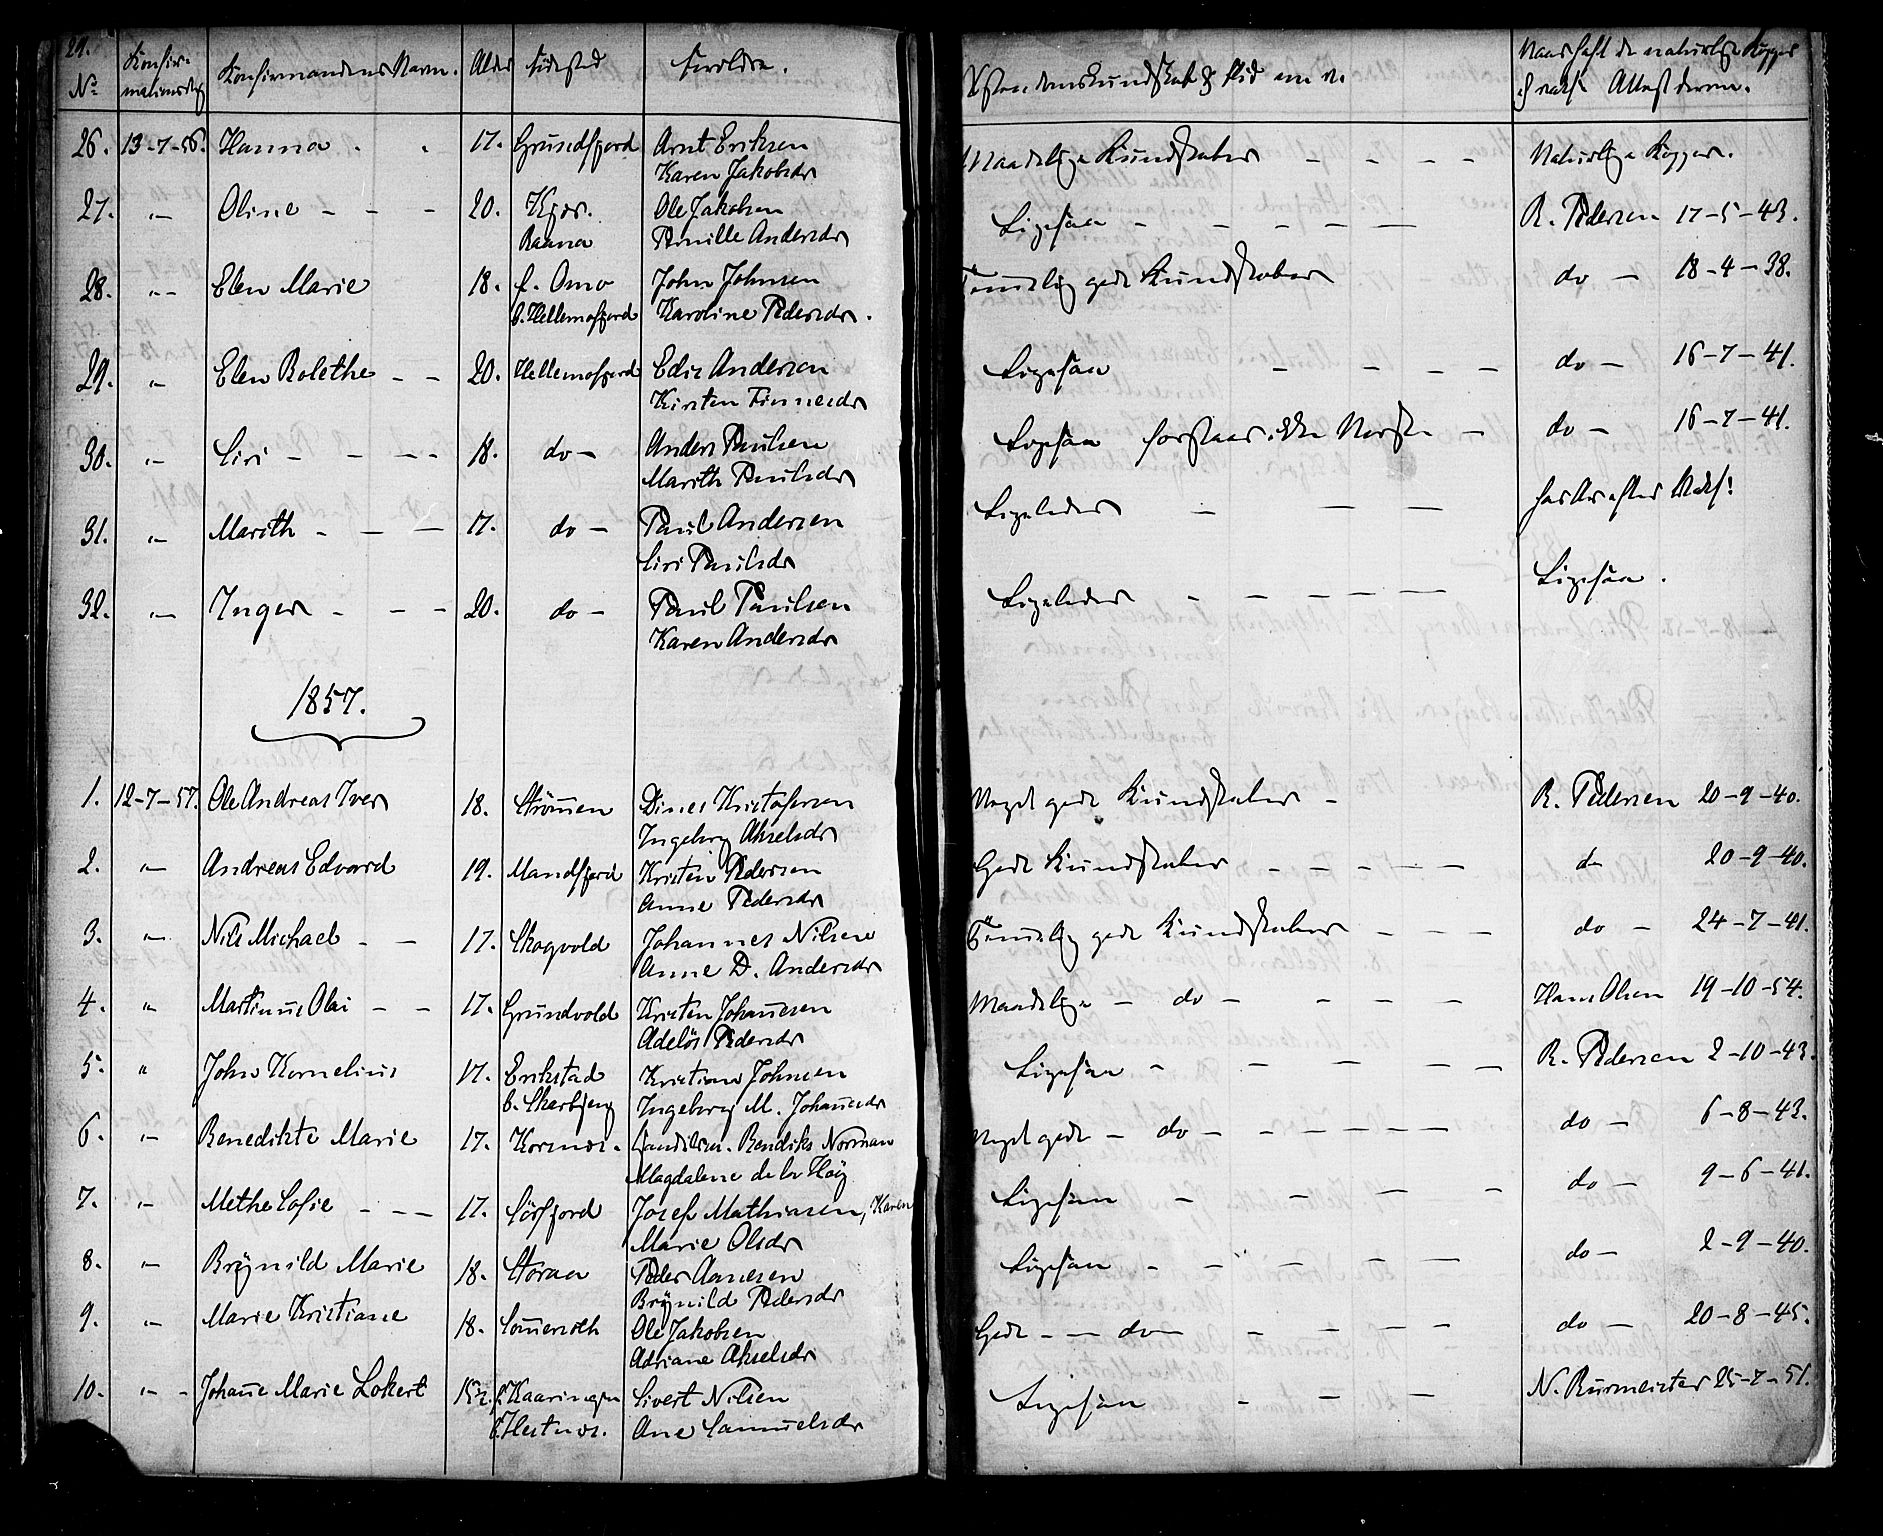 29.
No Konfirmationsdag Konfirmandens Navn. Alder Födested Forældre. Kristendomskundskab & Flid m. v. Naar haft de naturlige Kopper
Attest derom.
26. 13-7-56. Hanna 17. Grundfjord Arnt Eriksen Maadelige Kundskaber — — — — Naturlige Kopper.
Karen Jakobsdr
27. -"- Oline — — — 20. Kjær. Ole Jakobsen Ligesaa — — — — — R. Pedersen 17-5-43.
Raana Pernille Andersdr
28. -"- Elen Marie 18. f. Omo John Johnsen Temmelig gode Kundskaber do — 18-4-38.
b. Hellemofjord Karoline Pedersdr.
29. -"- Elen Bolethe — — 20. Hellemofjord Edis Andersen Ligesaa — — — — do — 16-7-41.
Kirsten Finnesdr
30. -"- Siri — — — — 18. do — Anders Paulsen Ligesaa forstaar ikke Norsk — do — 16-7-41.
Marith Paulsdr
31. -"- Marith — — — 17. do — Paul Andersen Ligeledes — — — har Ar efter
Siri Paulsdr
32. -"- Inger — — — 20. do — Paul Paulsen Ligeledes — — — — — Ligesaa.
Karen Andersdr
1857.
1. 12-7-57. Ole Andreas Iver 18. Strömen Dines Kristofersen Meget gode Kundskaber — R. Pedersen 20-9-40.
Ingeborg Akselsdr
2. -"- Andreas Edvard 19. Mandfjord Kristen Pedersen Gode Kundskaber — — — — — do 20-9-40.
Anne Pedersdr
3. -"- Nils Michael — — 17. Skogvold Johannes Nilsen Temmelig gode Kundskaber — — — — do — 24-7-41.
Anne D. Andersdr
4. " Martinus Olai — — 17. Grundvold Kristen Johanesen Maadelige — do — — — — Hans Olsen 19-10-54.
Adelös Pedersdr
5. " John Kornelius 17. Erikstad Kristian Johnsen Ligesaa — — — — — R. Pedersen 2-10-43.
b. Skarbjerg Ingeborg M. Johanesdr
6. -"- Benedikte Marie 17. Kornes. Handelsm. Bendiks Norman Meget gode — do — — — — — — do — 6-8-43.
Magdalene de la Höy
7. -"- Methe Sofie — — — 17. Sörfjord Josef Mathiasen, Karen Ligesaa — — — — do — 9-6-41.
Marie Olsdr
8. -"- Brynild Marie 18. Storaa Peder Aanesen Ligesaa — — — — — — do — 2-9-40.
Brynild Pedersdr
9. -"- Marie Kristiane 18. Somerseth Ole Jakobsen Gode — — do — — — — — do — 20-8-45.
Adriane Akselsdr
10. -"- - Johane Marie Lokert 15½. f. Kaaringen Sivert Nilsen Ligesaa — — — N. Burmeister 25-7-51.
b. Hestnes. Ane Samuelsdr